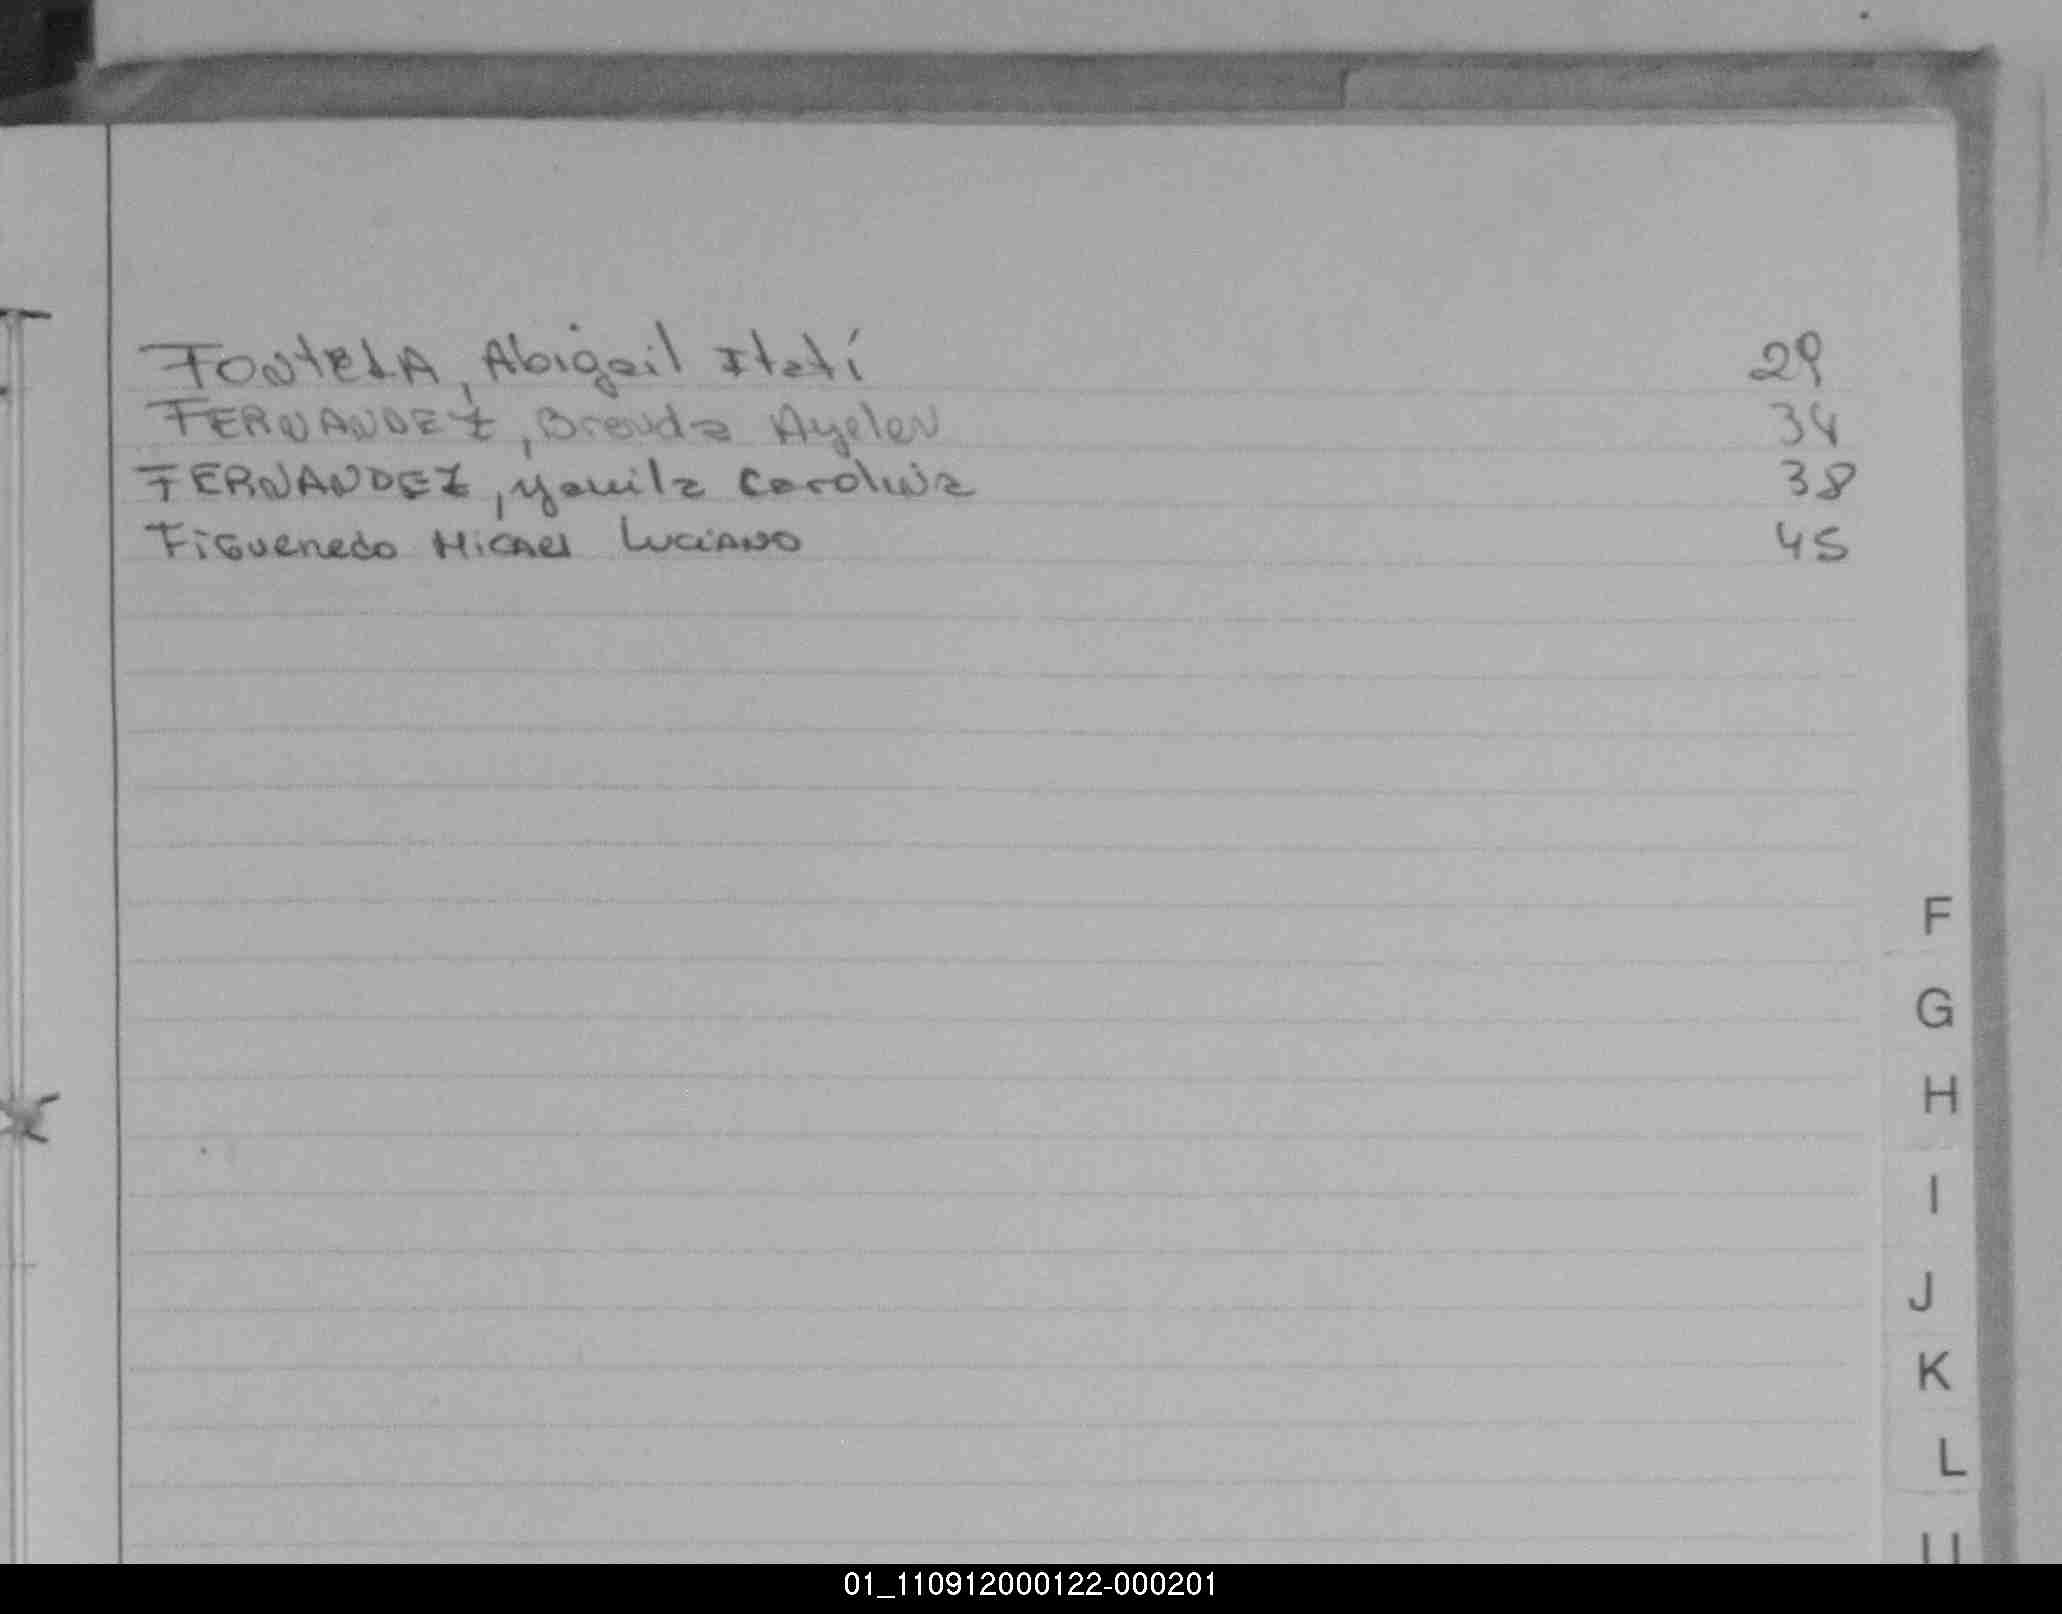 FONTELA, Abigail Itatí 29
FERNANDEZ, Brenda Ayelen 34
FERNANDEZ, Yamila Carolina 38
Figueredo Micael Luciano 45
F
G
H
I
J
K
L
01_110912000122-000201